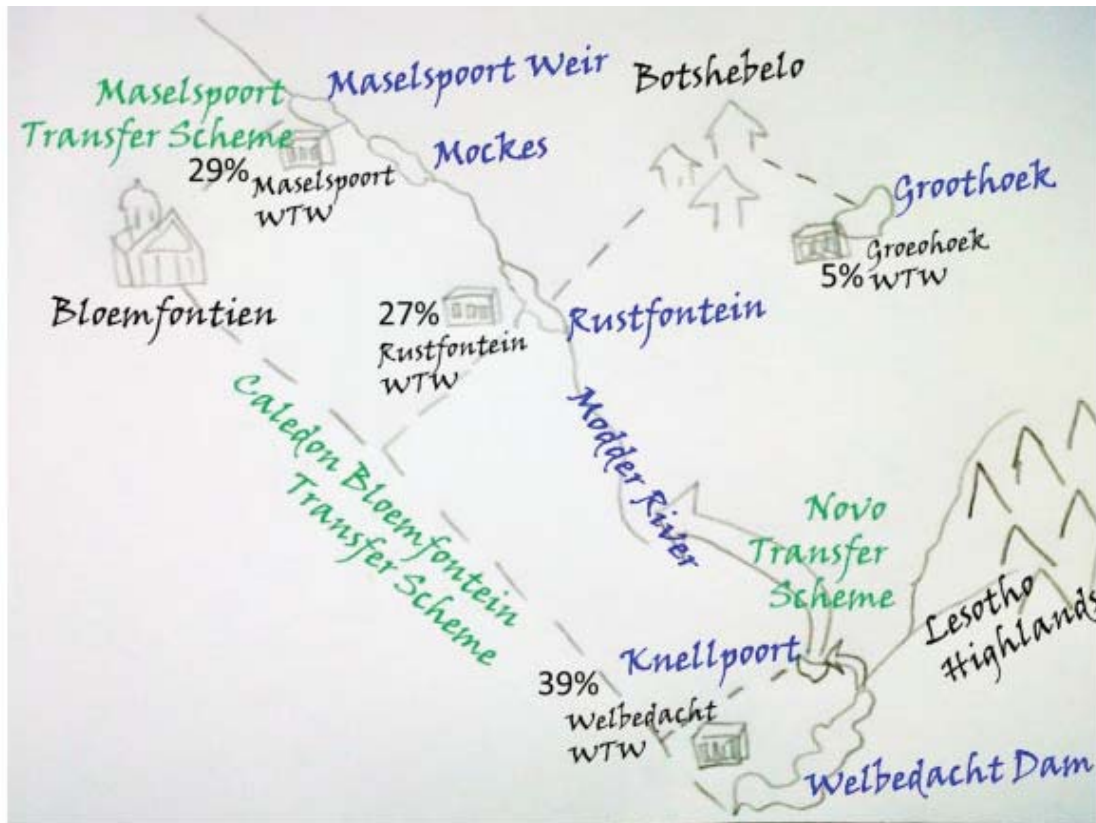 Maselspoort Weir
Botshebelo
Maselspoort
Transfer Scheme
29%
Maselspoort
WTW
Mockes
Groothoek
Groeohoek
5% WTW
Bloemfontien
27%
Rustfontein
WTW
Rustfontein
Caledon Bloemfontein
Transfer Scheme
Modder River
Novo
Transfer
Scheme
Lesotho
Highlands
Knellpoort
39%
Welbedacht
WTW
Welbedacht Dam